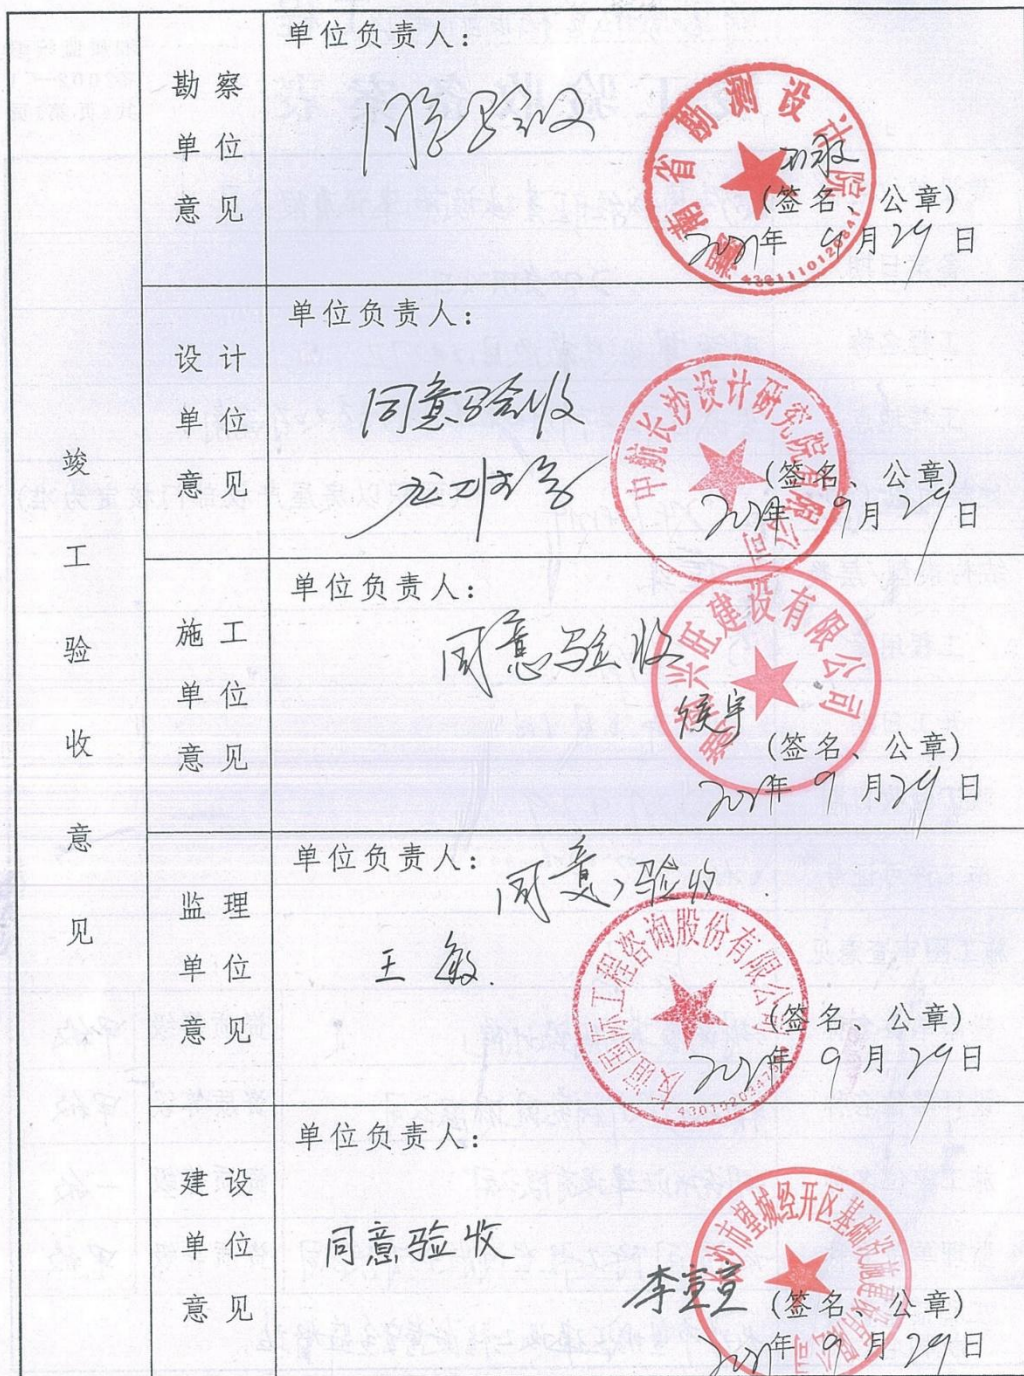 竣工验收意见
勘察单位意见
单位负责人:
同意验收
湖南省勘测设计院
(签名、公章)
2021年 9月29日
设计单位意见
单位负责人:
同意验收
中航长沙设计研究院有限公司
(签名、公章)
2021年 9月29日
施工单位意见
单位负责人:
同意验收
兴旺建设有限公司
侯宇
(签名、公章)
2021年 9月29日
监理单位意见
单位负责人:
同意验收
王敏
友谊国际工程咨询股份有限公司
(签名、公章)
2021年 9月29日
建设单位意见
单位负责人:
同意验收
长沙市望城经开区基础设施建设有限公司
李萱萱
(签名、公章)
2021年 9月29日